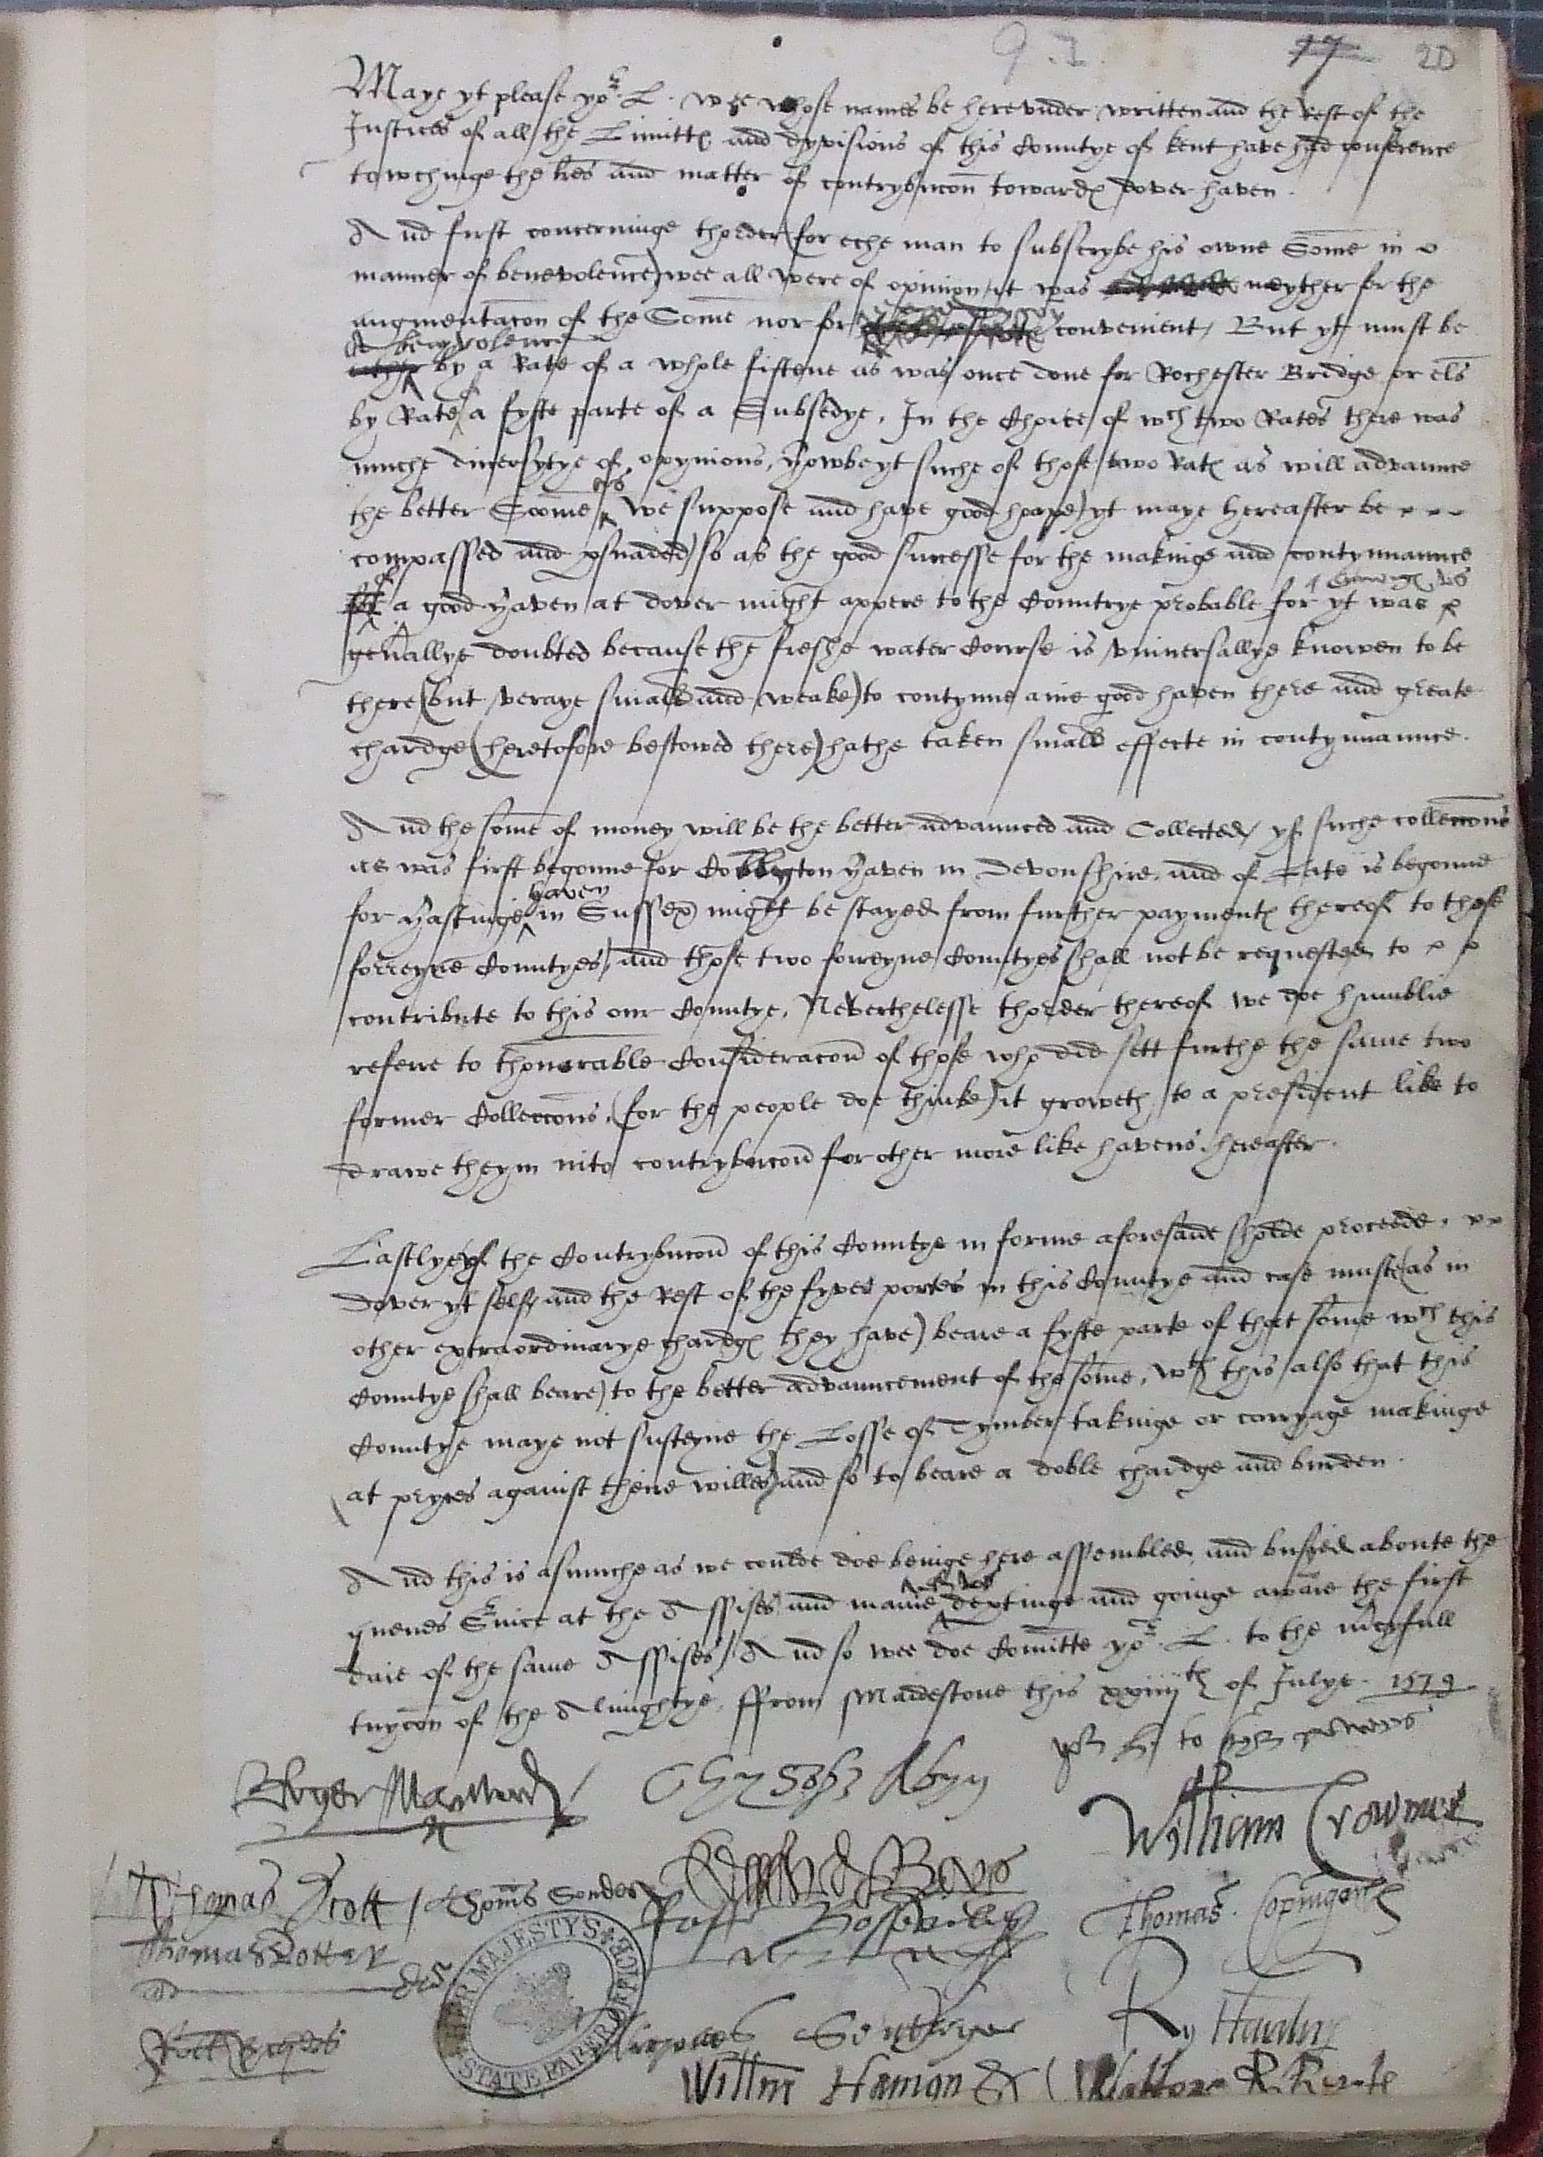 9. I. 17 20
Maye yt please yor. L. wee whose names be herevnder written and the Rest of the
Justices of all the Limittes and dyvisions of this Countye of kent have had conference
towchinge the lres and matter of contrybucon towardes dover haven.
And first concerninge thorder (for eche man to subscrybe his owne Some in
manner of benevolence) wee all were of opinion it was neyther for the
augmentacon of the Some nor for convenient, But yt must be
benyvolence
by a Rate of a whole fiftene as was once done for Rochester Bridge or els
by Rate of a fyfte parte of a Subsedye. In the Choice of wch two Rates there was
muche diversytye of opynions, howbeyt suche of those two Rates as will advaunce
the better Soome, we suppose and have good hoope) yt maye hereafter be
compassed and pswaded) so as the good successe for the makinge and contynuaunce
of a good haven at dover might appere to the Countrye probable for yt was
gen'allye doubted because the freshe water Course is vniversallye knowen to be
there (but veraye smale and weake) to contynue anie good haven there and greate
chardge (heretofore bestowed there) hathe taken smale effecte in contynuaunce.
And the some of money will be the better advaunced and Collected, yf suche colleccons
as was first begonne for Cobbyton haven in Devonshire. and of late is begonne
for hastinge haven in Sussex) might be stayed from further paymentes thereof to those
forreyne Countyes, and those two forreyne Countyes shall not be requested to
contribute to this our Countye, Neverthelesse thorder thereof we doe humblie
referre to thonorable Consideracon of those who did sett furthe the same two
former Colleccons, (for the people doe thinke) it groweth to a president like to
drawe theym into contrybucon for other more like havens hereafter.
Lastlye yf the Contrybucon of this Countye in forme aforesaide sholde proceede.
dover yt self, and the Rest of the fyve portes in this Countye and case muste (as in
other extraordinarye chardges they have) beare a fyfte parte of that some wch this
Countye shall beare) to the better advauncement of the some, wth this also that this
Countye maye not susteyne the Losse of Tymber takinge or carryage makinge
at pryces against theire willes) and so to beare a doble chardge and burden.
And this is asmuche as we coulde doe beinge here assembled and busyed aboute the
quenes Svice at the Assises and manie deptinge and goinge awaie the first
daie of the same Assises) And so wee doe Comitte yor. L. to the mcyfull
tuycon of the Almightye. ffrom Maidestone this xxiiijth of Julye. 1579
to powers
Roger Manwood
William Crowmer
Thomas Scott Thoms Sondes
Edward Boys
Thomas Copinger
Thomas Cotton
Raffe Bosseville
Ry Hardres
Willm Hamon
HER MAJESTYS STATE PAPER OFFICE